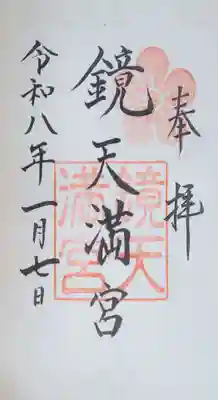 奉拝
鏡天満宮
鏡天満宮
令和八年一月七日